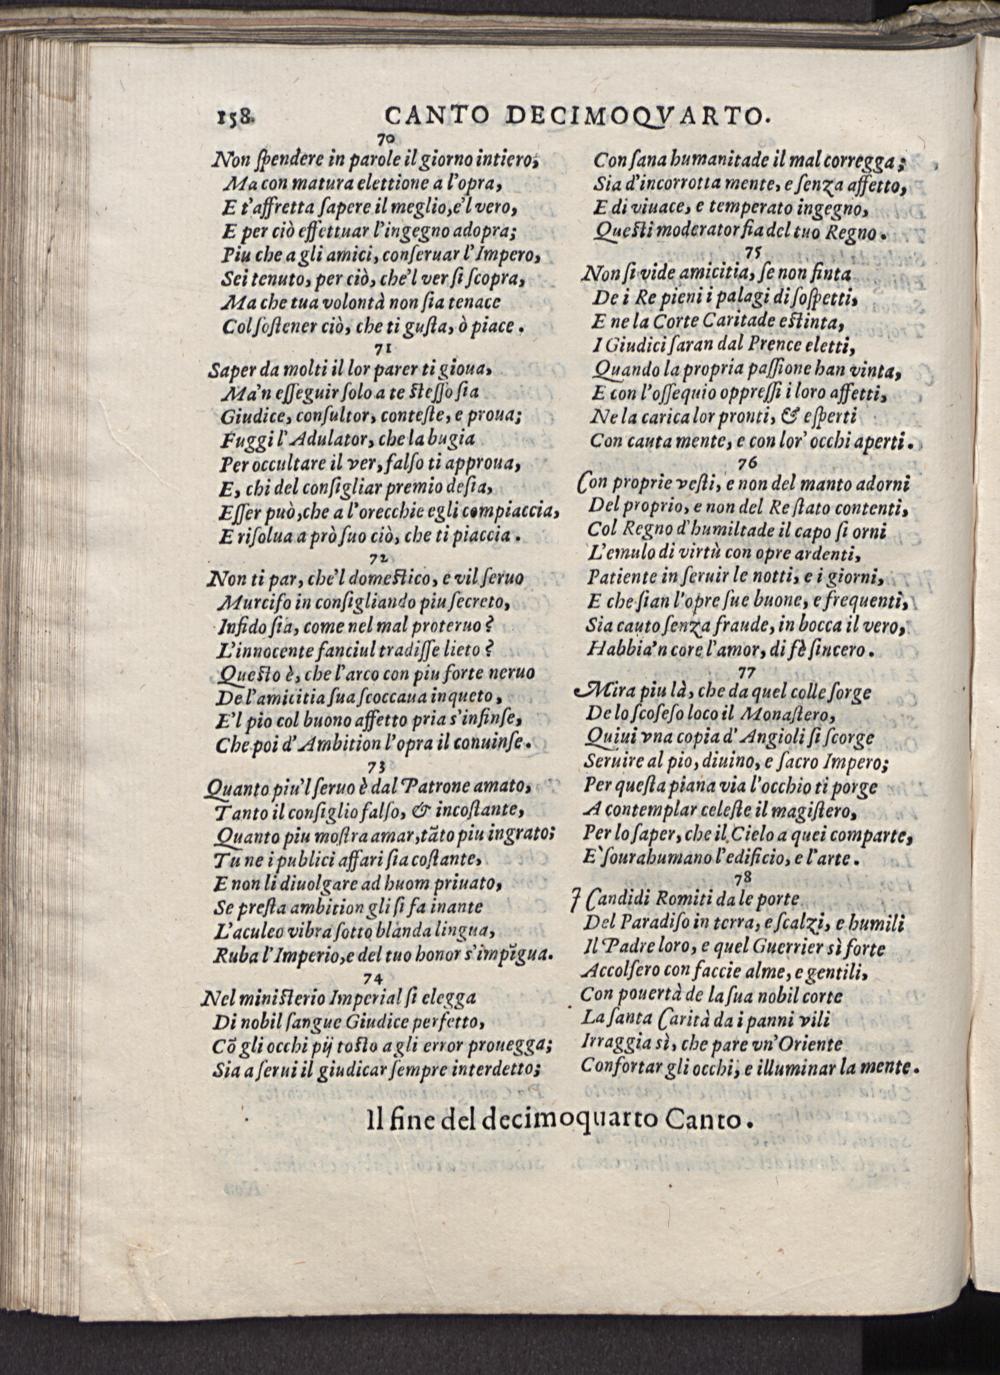 158.
CANTO DECIMOQVARTO.
70
Non ſpendere in parole il giorno intiero;
Ma con matura elettione a l'opra,
E t'affretta ſapere il meglio, e'l vero,
E per ciò effettuar l'ingegno adopra;
Piu che a gli amici, conſeruar l'Impero,
Sei tenuto, per ciò, che'l ver ſi ſcopra,
Ma che tua volontà non ſia tenace
Col ſoſtener ciò, che ti guſta, ò piace.
71
Saper da molti il lor parer ti gioua,
Ma'n eſſeguir ſolo a te ſteſſo ſia
Giudice, conſultor, conteſte, e proua;
Fuggi l'Adulator, che la bugia
Per occultare il ver, falſo ti approua,
E, chi del conſigliar premio deſia,
Eſſer può, che a l'orecchie egli compiaccia,
E riſolua a prò ſuo ciò, che ti piaccia.
72
Non ti par, che'l domeſtico, e vil ſeruo
Murciſo in conſigliando piu ſecreto,
Infido ſia, come nel mal proteruo?
L'innocente fanciul tradiſſe lieto?
Queſto è, che l'arco con piu forte neruo
De l'amicitia ſua ſcoccaua inqueto,
E'l pio col buono affetto pria s'infinſe,
Che poi d'Ambition l'opra il conuinſe.
73
Quanto piu'l ſeruo è dal Patrone amato,
Tanto il conſiglio falſo, & incoſtante,
Quanto piu moſtra amar, tāto piu ingrato;
Tu ne i publici affari ſia coſtante,
E non li diuolgare ad huom priuato,
Se preſta ambition gli ſi fa inante
L'aculeo vibra ſotto blanda lingua,
Ruba l'Imperio, e del tuo honor s'impīgua.
74
Nel miniſterio Imperial ſi elegga
Di nobil ſangue Giudice perfetto,
Cō gli occhi pij toſto a gli error prouegga;
Sia a ſerui il giudicar ſempre interdetto;
Con ſana humanitade il mal corregga;
Sia d'incorrotta mente, e ſenza affetto,
E di viuace, e temperato ingegno,
Queſti moderator ſia del tuo Regno.
75
Non ſi vide amicitia, ſe non finta
De i Re pieni i palagi di ſoſpetti,
E ne la Corte Caritade eſtinta,
I Giudici ſaran dal Prence eletti,
Quando la propria paſſione han vinta,
E con l'oſſequio oppreſſi i loro affetti,
Ne la carica lor pronti, & eſperti
Con cauta mente, e con lor' occhi aperti.
76
Con proprie veſti, e non del manto adorni
Del proprio, e non del Re ſtato contenti,
Col Regno d'humiltade il capo ſi orni
L'emulo di virtù con opre ardenti,
Patiente in ſeruir le notti, e i giorni,
E che ſian l'opre ſue buone, e frequenti,
Sia cauto ſenza fraude, in bocca il vero,
Habbia'n core l'amor, di fè ſincero.
77
Mira piu là, che da quel colle ſorge
De lo ſcoſeſo loco il Monaſtero,
Quiui vna copia d'Angioli ſi ſcorge
Seruire al pio, diuino, e ſacro Impero;
Per queſta piana via l'occhio ti porge
A contemplar celeſte il magiſtero,
Per lo ſaper, che il Cielo a quei comparte,
E' ſourahumano l'edificio, e l'arte.
78
I Candidi Romiti da le porte
Del Paradiſo in terra, e ſcalzi, e humili
Il Padre loro, e quel Guerrier sì forte
Accolſero con faccie alme, e gentili,
Con pouertà de la ſua nobil corte
La ſanta Carità da i panni vili
Irraggia sì, che pare vn'Oriente
Confortar gli occhi, e illuminar la mente.
Il fine del decimoquarto Canto.